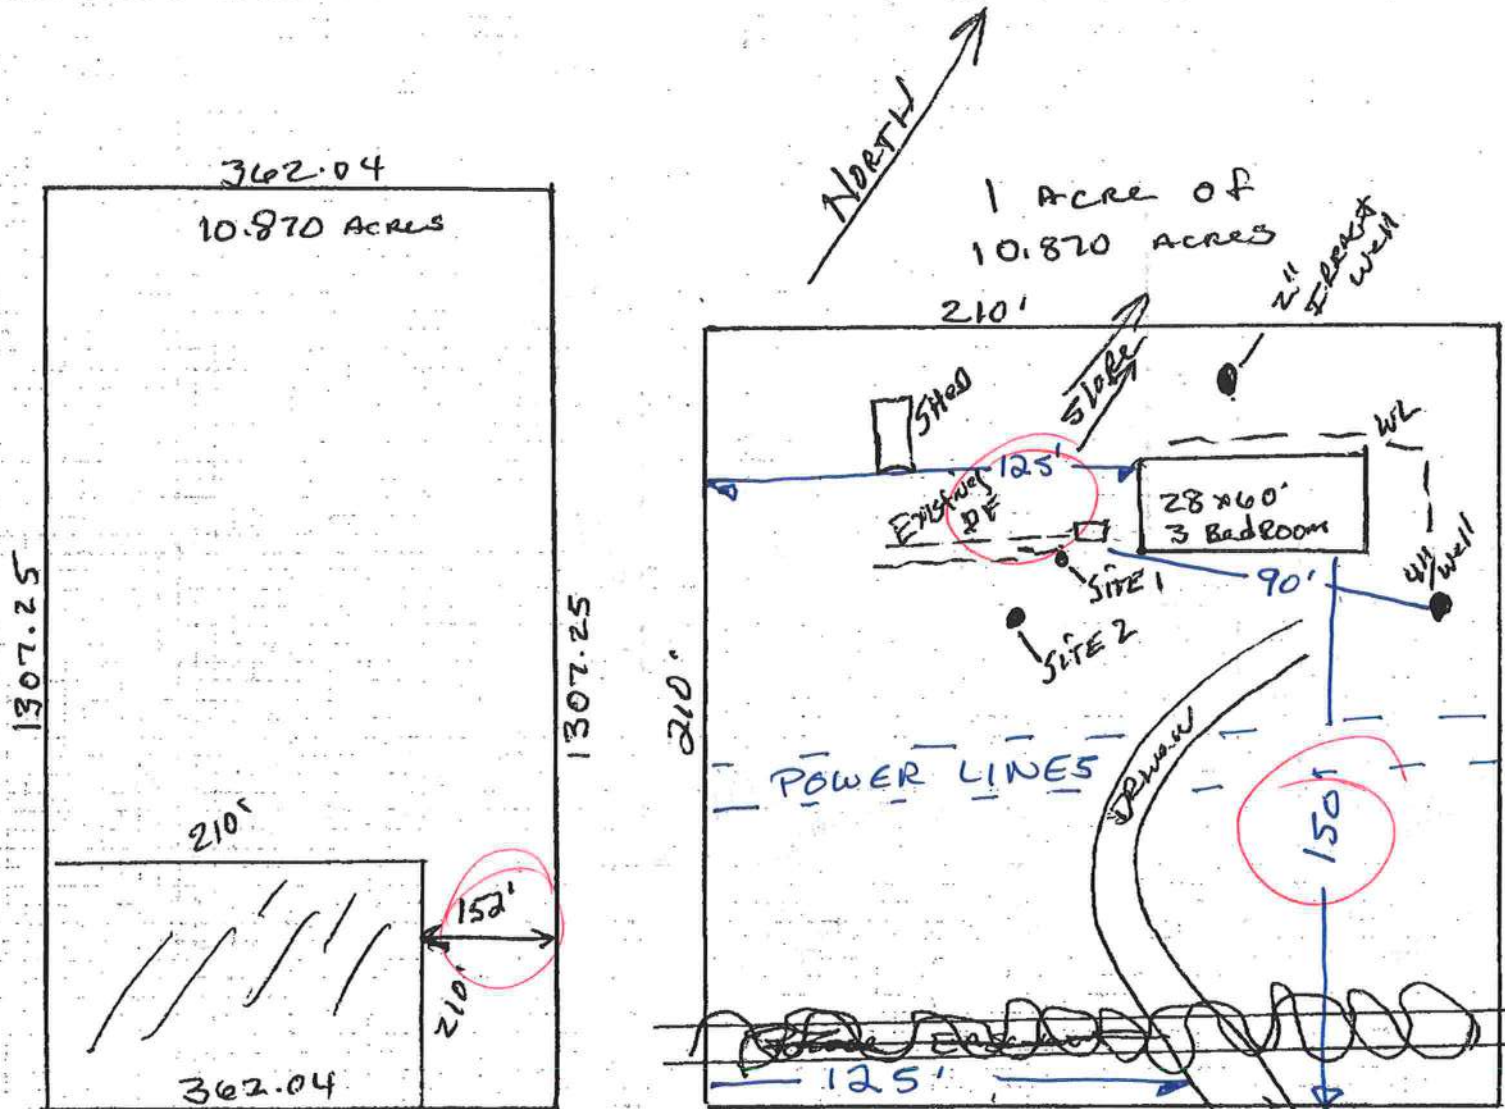 362.04
10.870 ACRES
1307.25
1307.25
210'
152'
210'
362.04
NORTH
1 ACRE OF
10.870 ACRES
210'
2"
Well
SHED
SLOPE
WL
125'
Existing
DF
28x60'
3 BedRoom
4" Well
90'
SITE 1
SITE 2
210'
POWER LINES
150'
125'